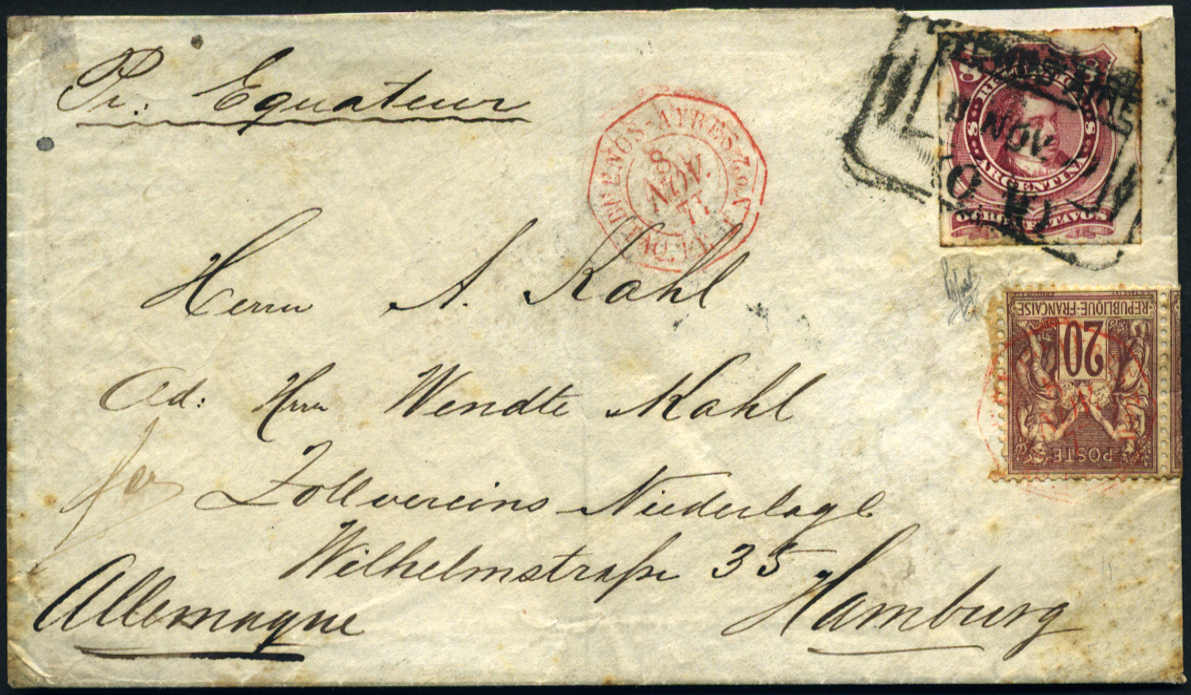 Pr: Equateur
BUENOS-AYRES
8
NOV.
77
PAQ. FR. J N
8 NOV.
REPUBLICA
ARGENTINA
8 8
OCHO CENTAVOS
Herrn A. Kahl
Ad: Herrn Wendte Kahl
Zollvereins Niederlage
Wilhelmstraße 35
Hamburg
Allemagne
REPUBLIQUE-FRANCAISE
20
POSTE